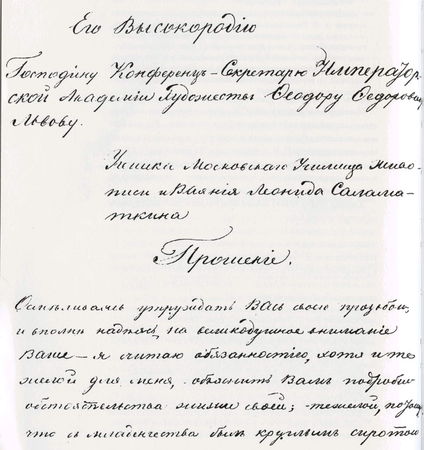 Его Высокородію
Господину Конференц-Секретарю Император-
ской Академіи Художествъ Ѳеодору Ѳедоровичу
Львову.
Ученика Московскаго Училища Живо-
писи и Ваянія Леонида Солома-
ткина
Прошеніе.
Осмѣливаясь утруждать Васъ своею прозьбою,
и вполнѣ надѣясь на великодушное вниманіе
Ваше – я считаю обязанностію, хотя и тя-
желой для меня, объяснить Вамъ подробно
обстоятельства жизни своей; – тяжелой, потому
что съ младенчества былъ круглымъ сиротою